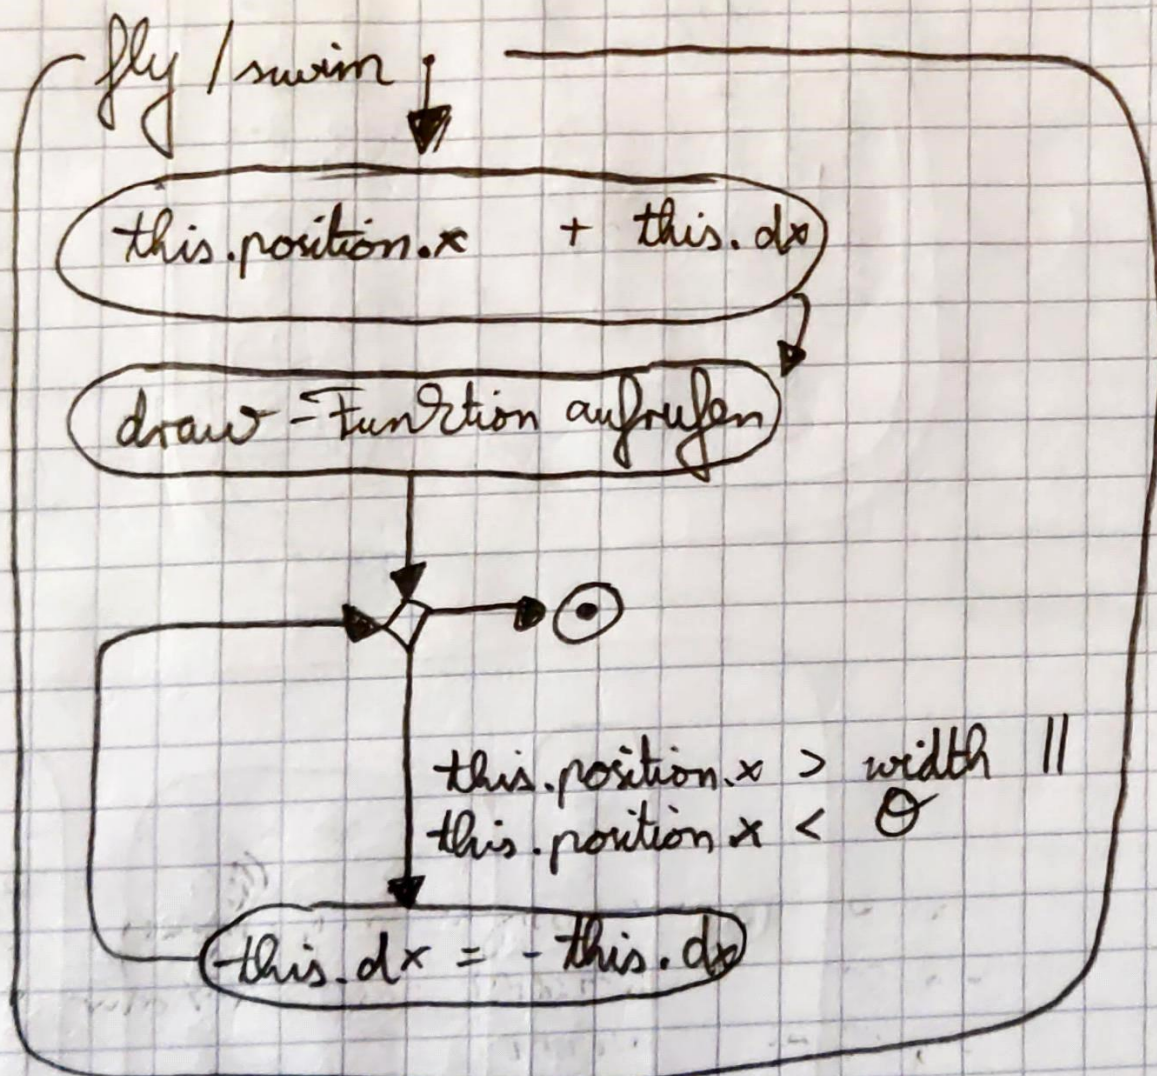 fly / swim
this.position.x + this.dx
draw-Funktion aufrufen
this.position.x > width ||
this.position.x < 0
this.dx = - this.dx